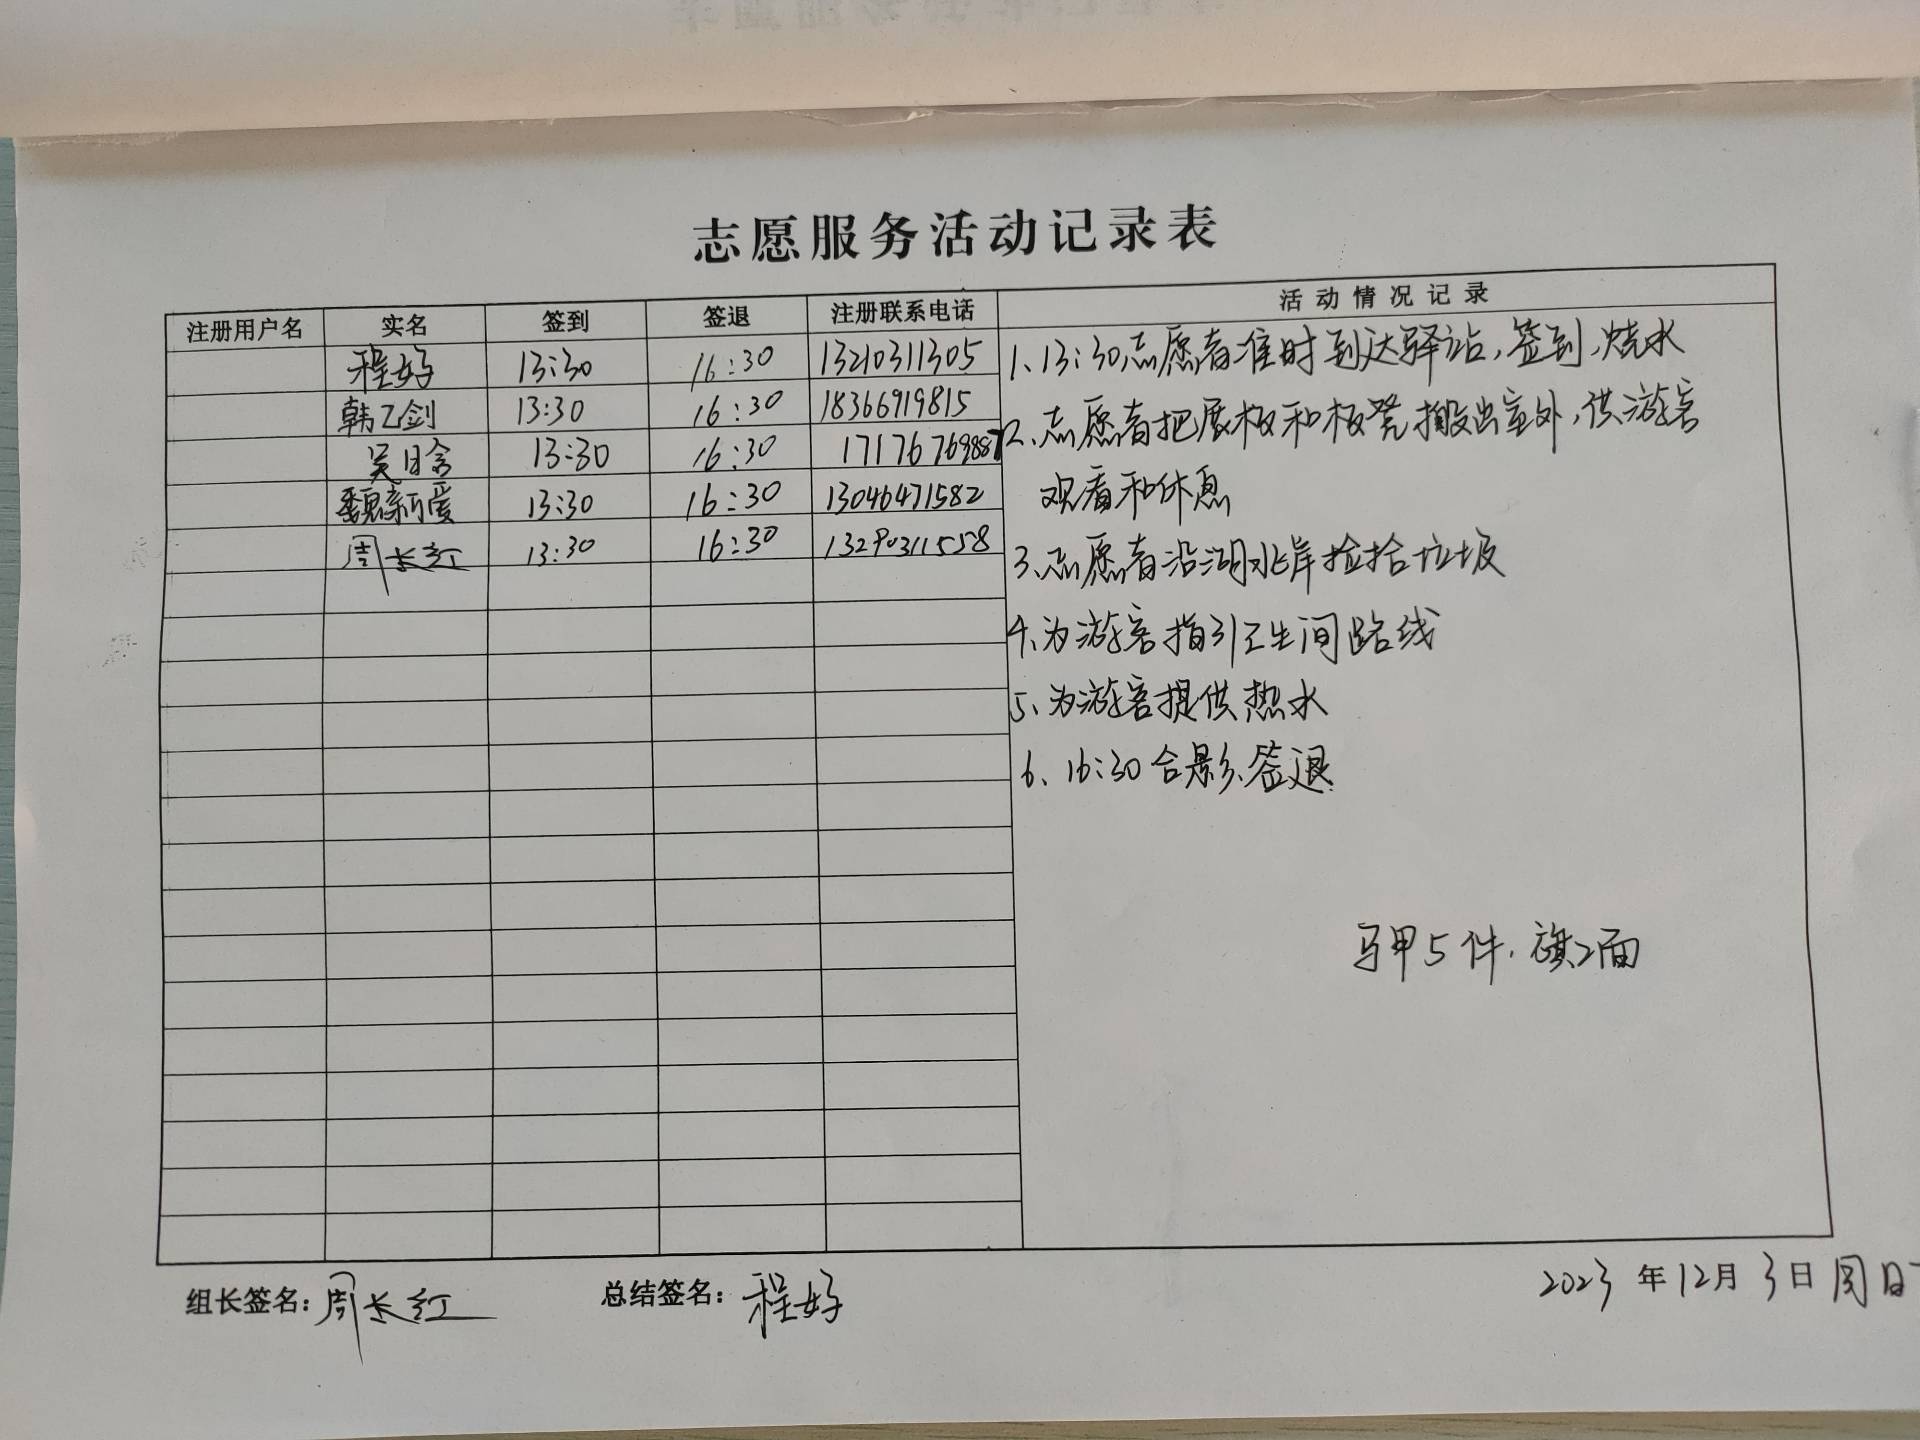 志愿服务活动记录表
注册用户名 实名 签到 签退 注册联系电话 活动情况记录
程好 13:30 16:30 13210311305
韩乙剑 13:30 16:30 18366919815
吴日含 13:30 16:30
魏新爱 13:30 16:30 13046471582
周长红 13:30 16:30
1、13:30志愿者准时到达驿站,签到、烧水
2、志愿者把展板和板凳搬出室外,供游客
观看和休息
3、志愿者沿湖北岸捡拾垃圾
4、为游客指引卫生间路线
5、为游客提供热水
6、16:30合影、签退
马甲5件、旗2面
组长签名:周长红 总结签名:程好 2023年12月3日周日